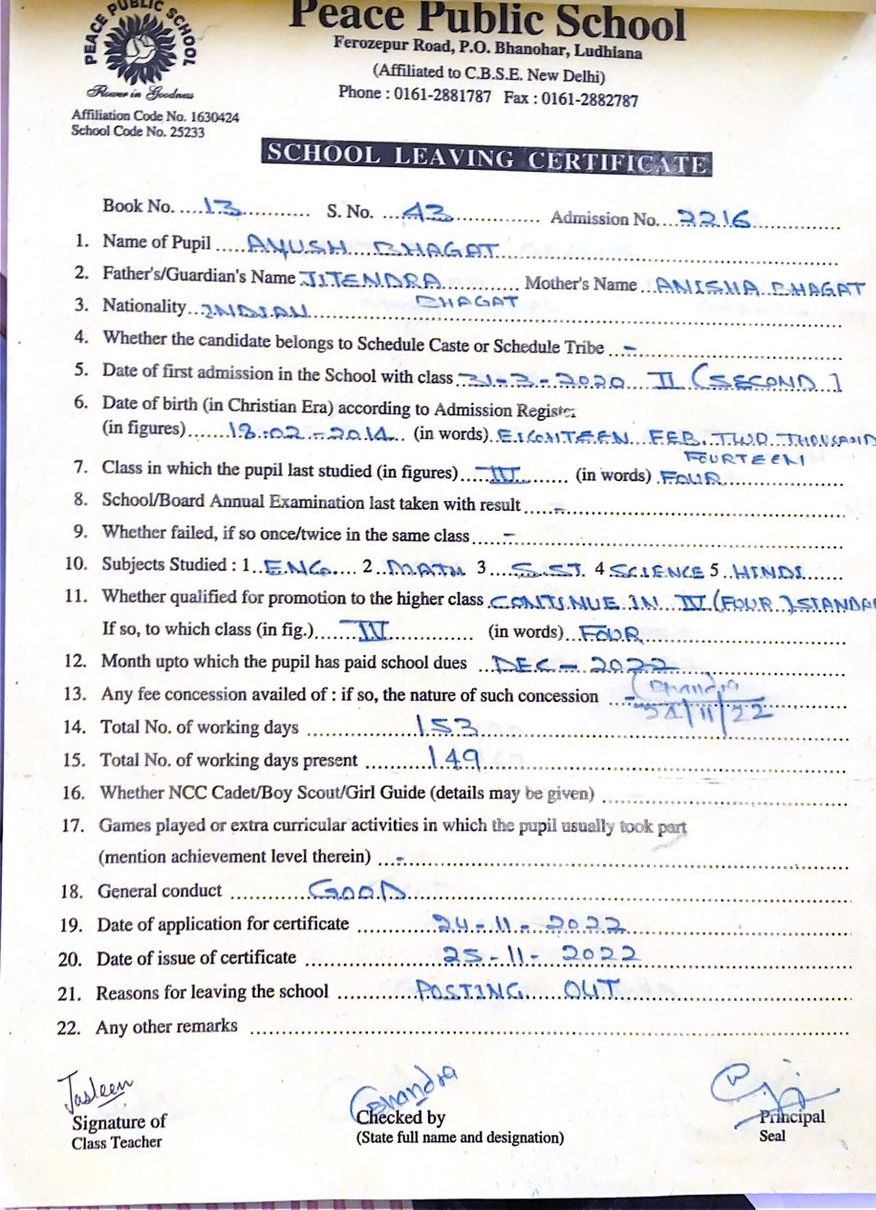 PEACE PUBLIC SCHOOL
Flower in Goodness
Affiliation Code No. 1630424
School Code No. 25233
Peace Public School
Ferozepur Road, P.O. Bhanohar, Ludhiana
(Affiliated to C.B.S.E. New Delhi)
Phone : 0161-2881787 Fax : 0161-2882787
SCHOOL LEAVING CERTIFICATE
Book No. 13 S. No. 43 Admission No. 2216
1. Name of Pupil AYUSH BHAGAT
2. Father's/Guardian's Name JITENDRA BHAGAT Mother's Name ANISHA BHAGAT
3. Nationality INDIAN
4. Whether the candidate belongs to Schedule Caste or Schedule Tribe -
5. Date of first admission in the School with class 31-3-2020 II (SECOND)
6. Date of birth (in Christian Era) according to Admission Register
(in figures) 18-02-2014 (in words) EIGHTEEN FEB. TWO THOUSAND
FOURTEEN
7. Class in which the pupil last studied (in figures) IV (in words) FOUR
8. School/Board Annual Examination last taken with result -
9. Whether failed, if so once/twice in the same class -
10. Subjects Studied : 1 ENG. 2 MATH 3 S.ST. 4 SCIENCE 5 HINDI
11. Whether qualified for promotion to the higher class CONTINUE IN IV (FOUR) STANDAR
If so, to which class (in fig.) IV (in words) FOUR
12. Month upto which the pupil has paid school dues DEC - 2022
13. Any fee concession availed of : if so, the nature of such concession -
Chandra
24/11/22
14. Total No. of working days 153
15. Total No. of working days present 149
16. Whether NCC Cadet/Boy Scout/Girl Guide (details may be given)
17. Games played or extra curricular activities in which the pupil usually took part
(mention achievement level therein) -
18. General conduct GOOD
19. Date of application for certificate 24-11-2022
20. Date of issue of certificate 25-11-2022
21. Reasons for leaving the school POSTING OUT
22. Any other remarks
Jasleen
Signature of
Class Teacher
Chandra
Checked by
(State full name and designation)
Principal
Seal